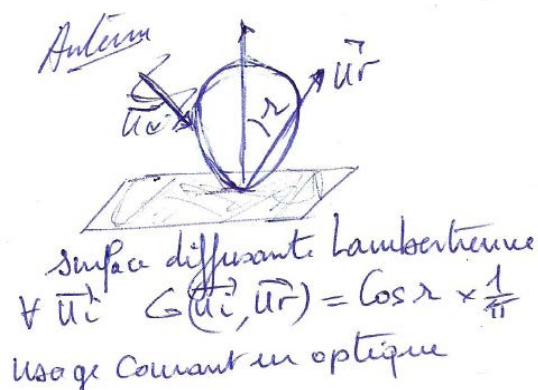 ui
r
ur
surface diffusante Lambertienne
∀ ui G(ui, ur) = Cos r × 1/π
usage courant en optique